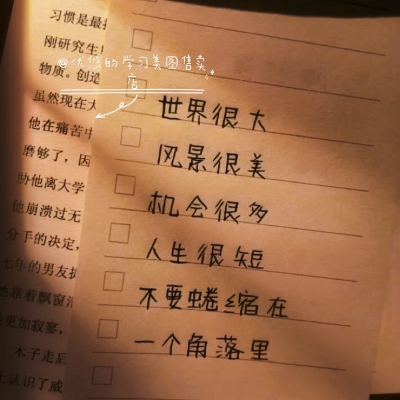 习惯是最
刚研究生
物质。创造
虽然现在大
他在痛苦中
磨够了，因
助他离大学
他崩溃过无
分手的决定，
七年的男友
他靠着飘窗
更加寂寞，
木子走后
认识了
@优悠的学习美图售卖
店
世界很大
风景很美
机会很多
人生很短
不要蜷缩在
一个角落里